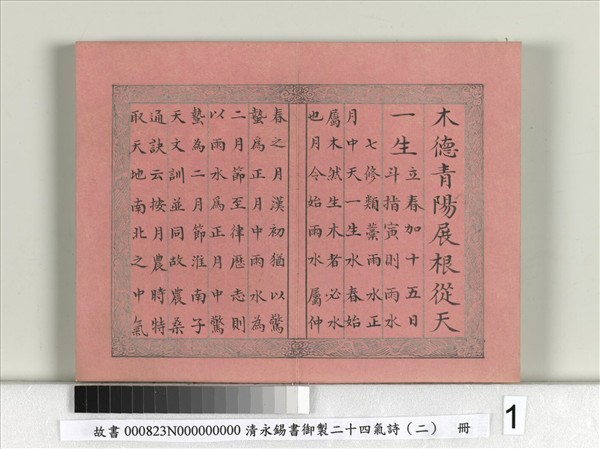 木德青陽展根從天
一生
立春加十五日
斗指寅則雨水
七修類藁雨水正
月中天一生水春始
屬木然生木者必水
也月令始雨水屬仲
春之月漢初猶以驚
蟄爲正月中雨水為
二月節至律歷志則
以雨水爲正月中驚
蟄為二月節淮南子
天文訓並同故農桑
通訣云按月農時特
取天地南北之中氣
故書 000823N000000000 清永錫書御製二十四氣詩（二） 冊
1